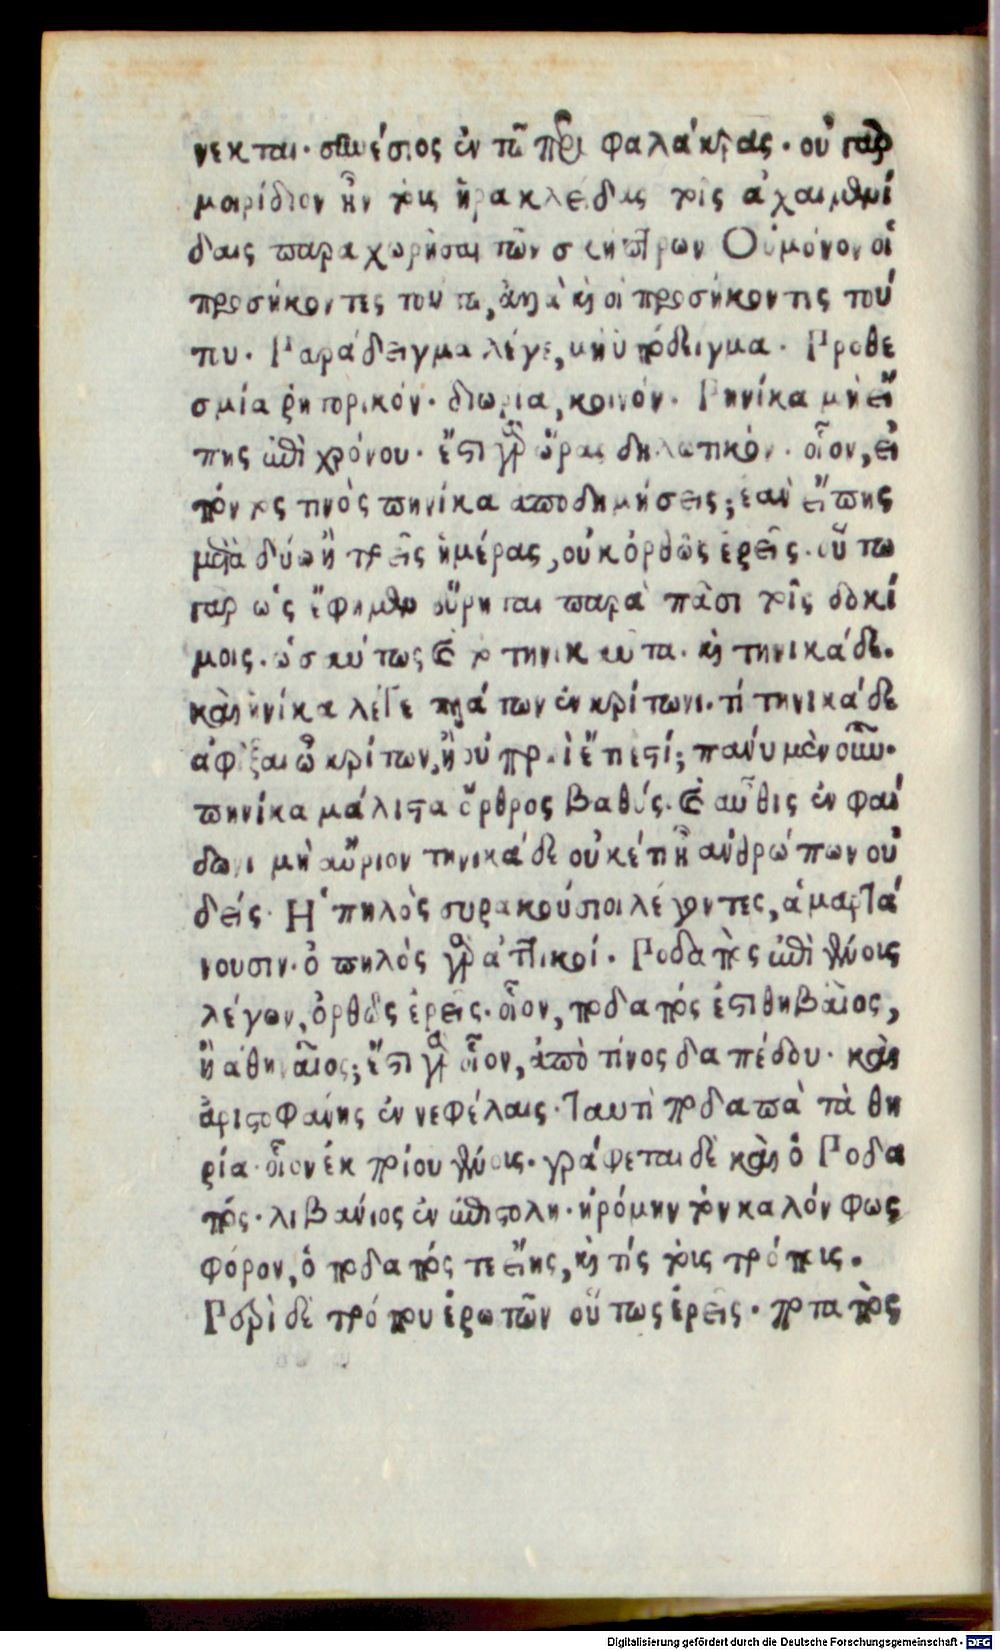 νεκται· συνέσιος ἐν τῶ περὶ φαλάκρας· οὐ γαρ
μοιρίδιον ἦν τοις ἡρακλείδαις τοῖς ἀχαιμενί
δαις παραχωρῆσαι τῶν σκήπτρων Οὐ μόνον οἱ
προσήκοντες τούτω, ἀλλὰ καὶ οἱ προσήκοντες τού
του· Παράδειγμα λέγε, μὴ ὑπόδειγμα· Προθε
σμία ῥητορικόν· διωρία, κοινόν· Πηνίκα μὴ εἴ
πης ἐπὶ χρόνου· ἔστι γὰρ ὥρας δηλωτικόν· οἷον, εἰ
πόντος τινὸς πηνίκα αποδημήσεις; ἐαν εἴπης
μετὰ δύω ἢ τρεῖς ἡμέρας, οὐκ ὀρθῶς ἐρεῖς· οὕτω
γαρ ὡς ἔφημεν εὕρηται παρὰ πᾶσι τοῖς δοκί
μοις· ὡσαύτως καὶ το τηνικαῦτα· καὶ τηνικάδε·
καὶ ἡνίκα λέγε πλάτων ἐν κρίτωνι· τί τηνικάδε
ἀφῖξαι ὦ κρίτων, ἢ οὐ πρωὶ ἔτι ἐστί; πανύ μὲν οὖν·
πηνίκα μάλιστα ὄρθρος βαθύς· καὶ αὖθις ἐν φαί
δωνι μὴ αὔριον τηνικάδε οὐκέτι ᾖ ανθρώπων οὐ
δείς· Ἡ πηλὸς συρακούσιοι λέγοντες, ἁμαρτά
νουσιν· ὁ πηλὸς γὰρ ἀττικοί· Ποδαπὸς ἐπὶ γένους
λέγων, ὀρθῶς ἐρεῖς· οἷον, ποδαπός ἐστι θηβαῖος,
ἢ ἀθηναῖος; ἔστι γὰρ οἷον, ἀπὸ τίνος δαπέδου· καὶ
ἀριστοφάνης ἐν νεφέλαις· Ταυτὶ ποδαπὰ τὰ θη
ρία· οἷον ἐκ ποίου γένους· γράφεται δὲ καὶ ὁ Ποδα
πός· λιβάνιος ἐν ἐπιστολη· ἠρόμην τὸν καλόν φως
φόρον, ὁ ποδαπός τε εἴης, καὶ τίς τοις τρόποις·
Περὶ δὲ τρόπου ἐρωτῶν οὕτως ἐρεῖς· ποταπὸς